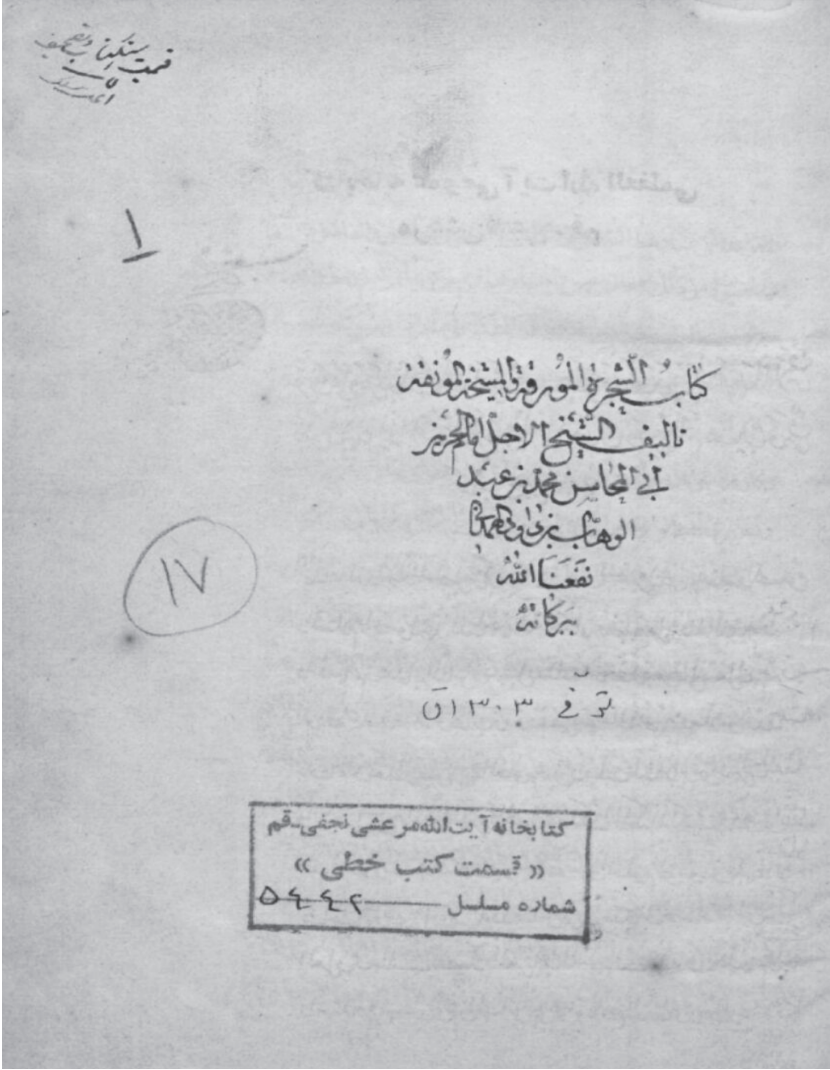 قیمت
١
كتاب الشجرة المورقة والمشيخة المونقة
تاليف الشيخ الاجل امام الحرمين
أبي المحاسن محمد بن عبد
الوهاب بن داود الهمداني
نفعنا الله
ببركاته
١٧
توفي ١٣٠٣ق
كتابخانه آيت الله مرعشى نجفى - قم
« قسمت كتب خطى »
شماره مسلسل ٥٤٤٢